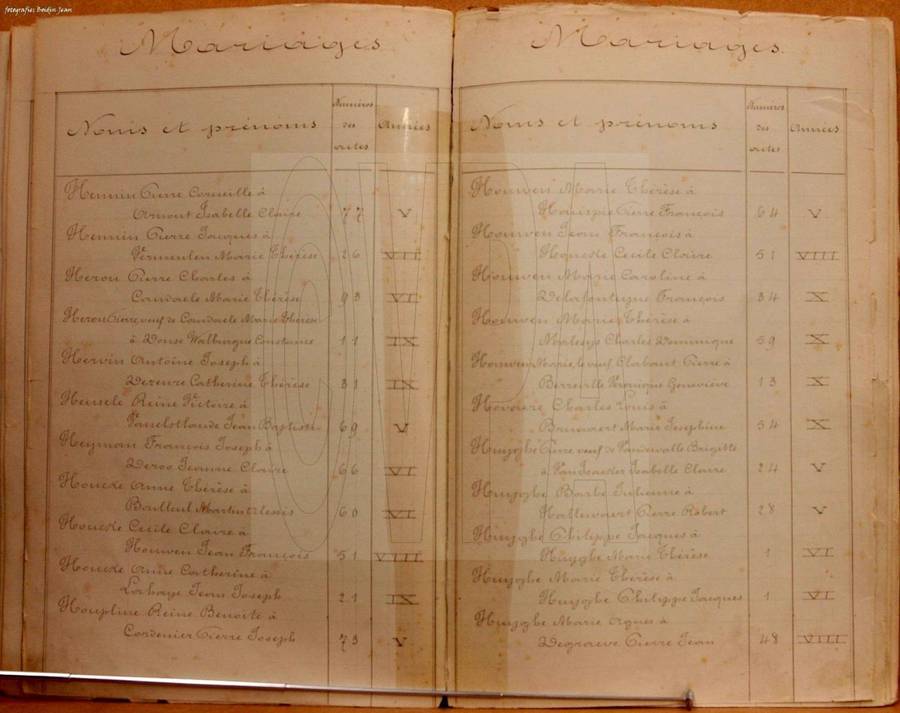 fotografie: Boidin Jean
Mariages
Noms et prénoms
Numéros
des
actes
Années
Hennin Pierre Corneille à
Isabelle Claire 77 V
Hennin Pierre Jacques à
Vermeulen Marie Thérèse 26 VII
Herou Pierre Charles à
Coudaele Marie Thérèse 93 VI
Herou Pierre veuf de Coudaele Marie Thérèse
à Donse Walburgue Constance 11 IX
Hervin Antoine Joseph à
Dereure Catherine Thérèse 31 IX
Heusele Reine Victoire à
Jean Baptiste 69 V
Heyman François Joseph à
Deroo Jeanne Claire 66 VI
Houcke Anne Thérèse à
Bailleul Martin Alexis 60 VI
Houcke Cecile Claire à
Houwen Jean François 51 VIII
Houcke Anne Catherine à
Lahaye Jean Joseph 21 IX
Houpline Reine Benoite à
Cordenier Pierre Joseph 73 V
Mariages.
Noms et prénoms
Numéros
des
actes
Années
Houwen Marie Thérèse à
Pierre François 64 V
Houwen Jean François à
Houcke Cecile Claire 51 VIII
Houwen Marie Caroline à
Delafontayne François 34 X
Houwen Marie Thérèse à
Charles Dominique 59 X
Houwen Pierre à
Berreille Véronique Geneviève 13 X
Charles Louis à
Marie Josephine 54 X
Huyghe Pierre veuf de Vandewalle Brigitte
à Isabelle Claire 24 V
Huyghe Barbe Julienne à
Pierre Robert 28 V
Huyghe Philippe Jacques à
Huyghe Marie Thérèse 1 VI
Huyghe Marie Thérèse à
Huyghe Philippe Jacques 1 VI
Huyghe Marie Agnès à
Degraeve Pierre Jean 48 VIII